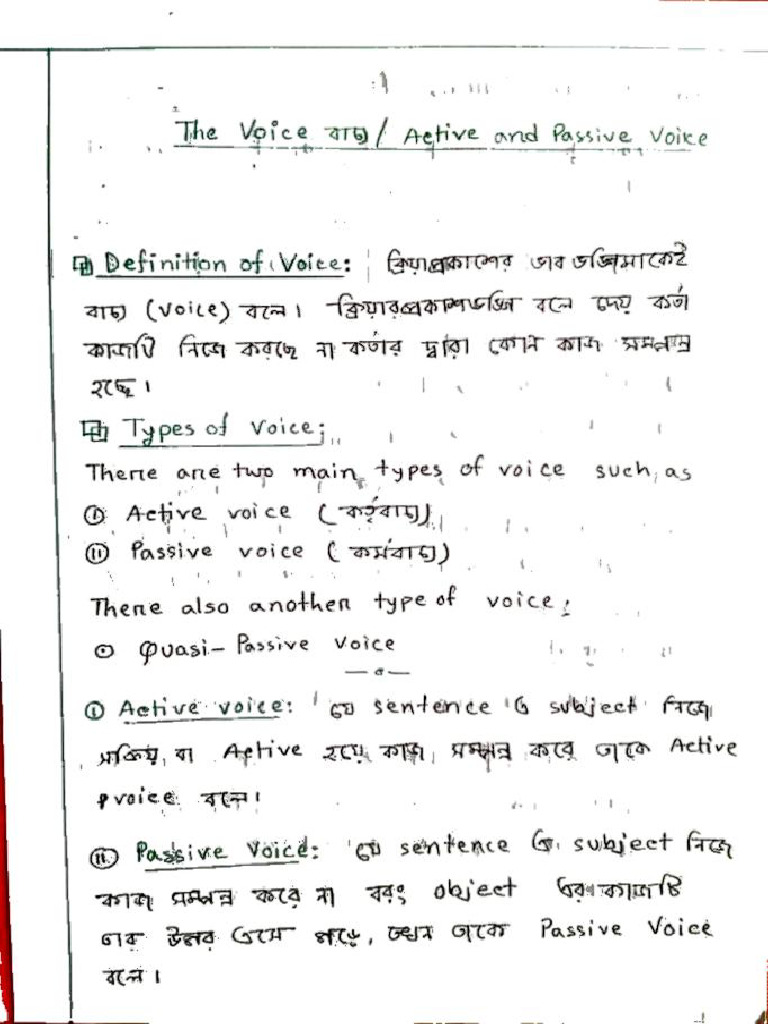 The Voice বাচ্য / Active and Passive Voice
Definition of Voice: ক্রিয়া প্রকাশের ভাব ভঙ্গিমাকেই
বাচ্য (voice) বলে। ক্রিয়ার প্রকাশভঙ্গি বলে দেয় কর্তা
কাজটি নিজে করছে না কর্তার দ্বারা কোন কাজ সম্পন্ন
হচ্ছে।
Types of Voice:
There are two main types of voice such as
(i) Active voice (কর্তৃবাচ্য)
(ii) Passive voice (কর্মবাচ্য)
There also another type of voice:
Quasi-Passive Voice
(i) Active voice: যে sentence এ subject নিজে
সক্রিয় বা Active হয়ে কাজ সম্পন্ন করে তাকে Active
voice বলে।
(ii) Passive Voice: যে sentence এ subject নিজে
কাজ সম্পন্ন করে না বরং object এর কাজটি
তার উপর এসে পড়ে, তখন তাকে Passive Voice
বলে।